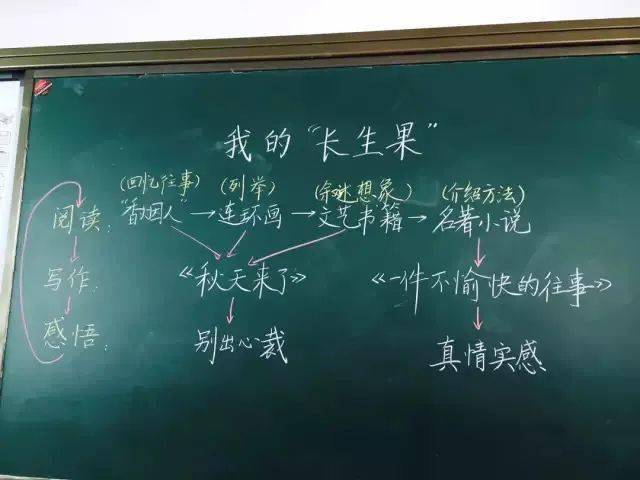 我的“长生果”
(回忆往事) (列举) (余味想象) (介绍方法)
阅读：“香烟人”→连环画→文艺书籍→名著小说
写作：《秋天来了》 《一件不愉快的往事》
感悟：别出心裁 真情实感